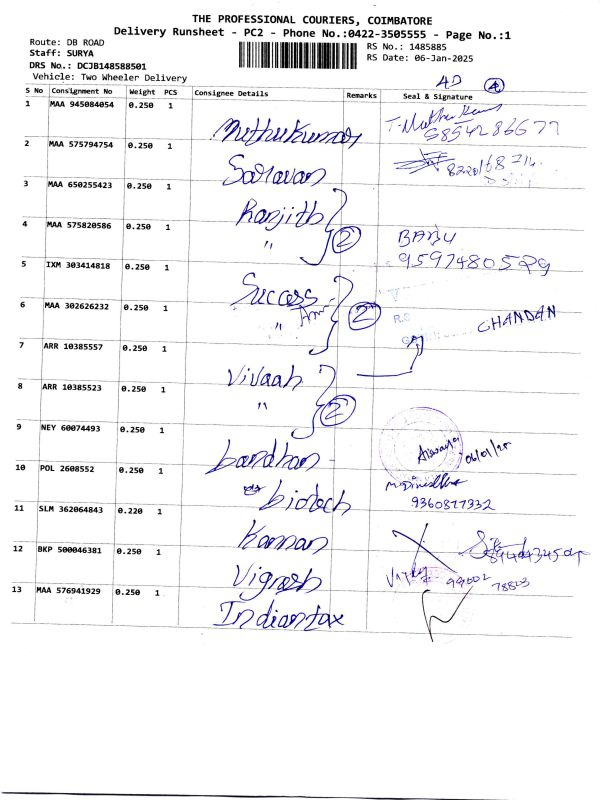 THE PROFESSIONAL COURIERS, COIMBATORE
Delivery Runsheet - PC2 - Phone No.:0422-3505555 - Page No.:1
Route: DB ROAD
RS No.: 1485885
Staff: SURYA
RS Date: 06-Jan-2025
DRS No.: DCJB148588501
Vehicle: Two Wheeler Delivery
4D 4
S No Consignment No Weight PCS Consignee Details Remarks Seal & Signature
1 MAA 945084054 0.250 1 Muthukumar
2 MAA 575794754 0.250 1 Saravan
3 MAA 650255423 0.250 1 Ranjith
4 MAA 575820586 0.250 1 " 2 BABU
5 IXM 303414818 0.250 1 Success
6 MAA 302626232 0.250 1 " 2 R.S CHANDAN
7 ARR 10385557 0.250 1 Vivaah
8 ARR 10385523 0.250 1 " 2
9 NEY 60074493 0.250 1 bandhan 06/01/25
10 POL 2608552 0.250 1 biotech 9360877332
11 SLM 362064843 0.220 1 Kannan
12 BKP 500046381 0.250 1 Vignesh 99002 78803
13 MAA 576941929 0.250 1 Indiantax